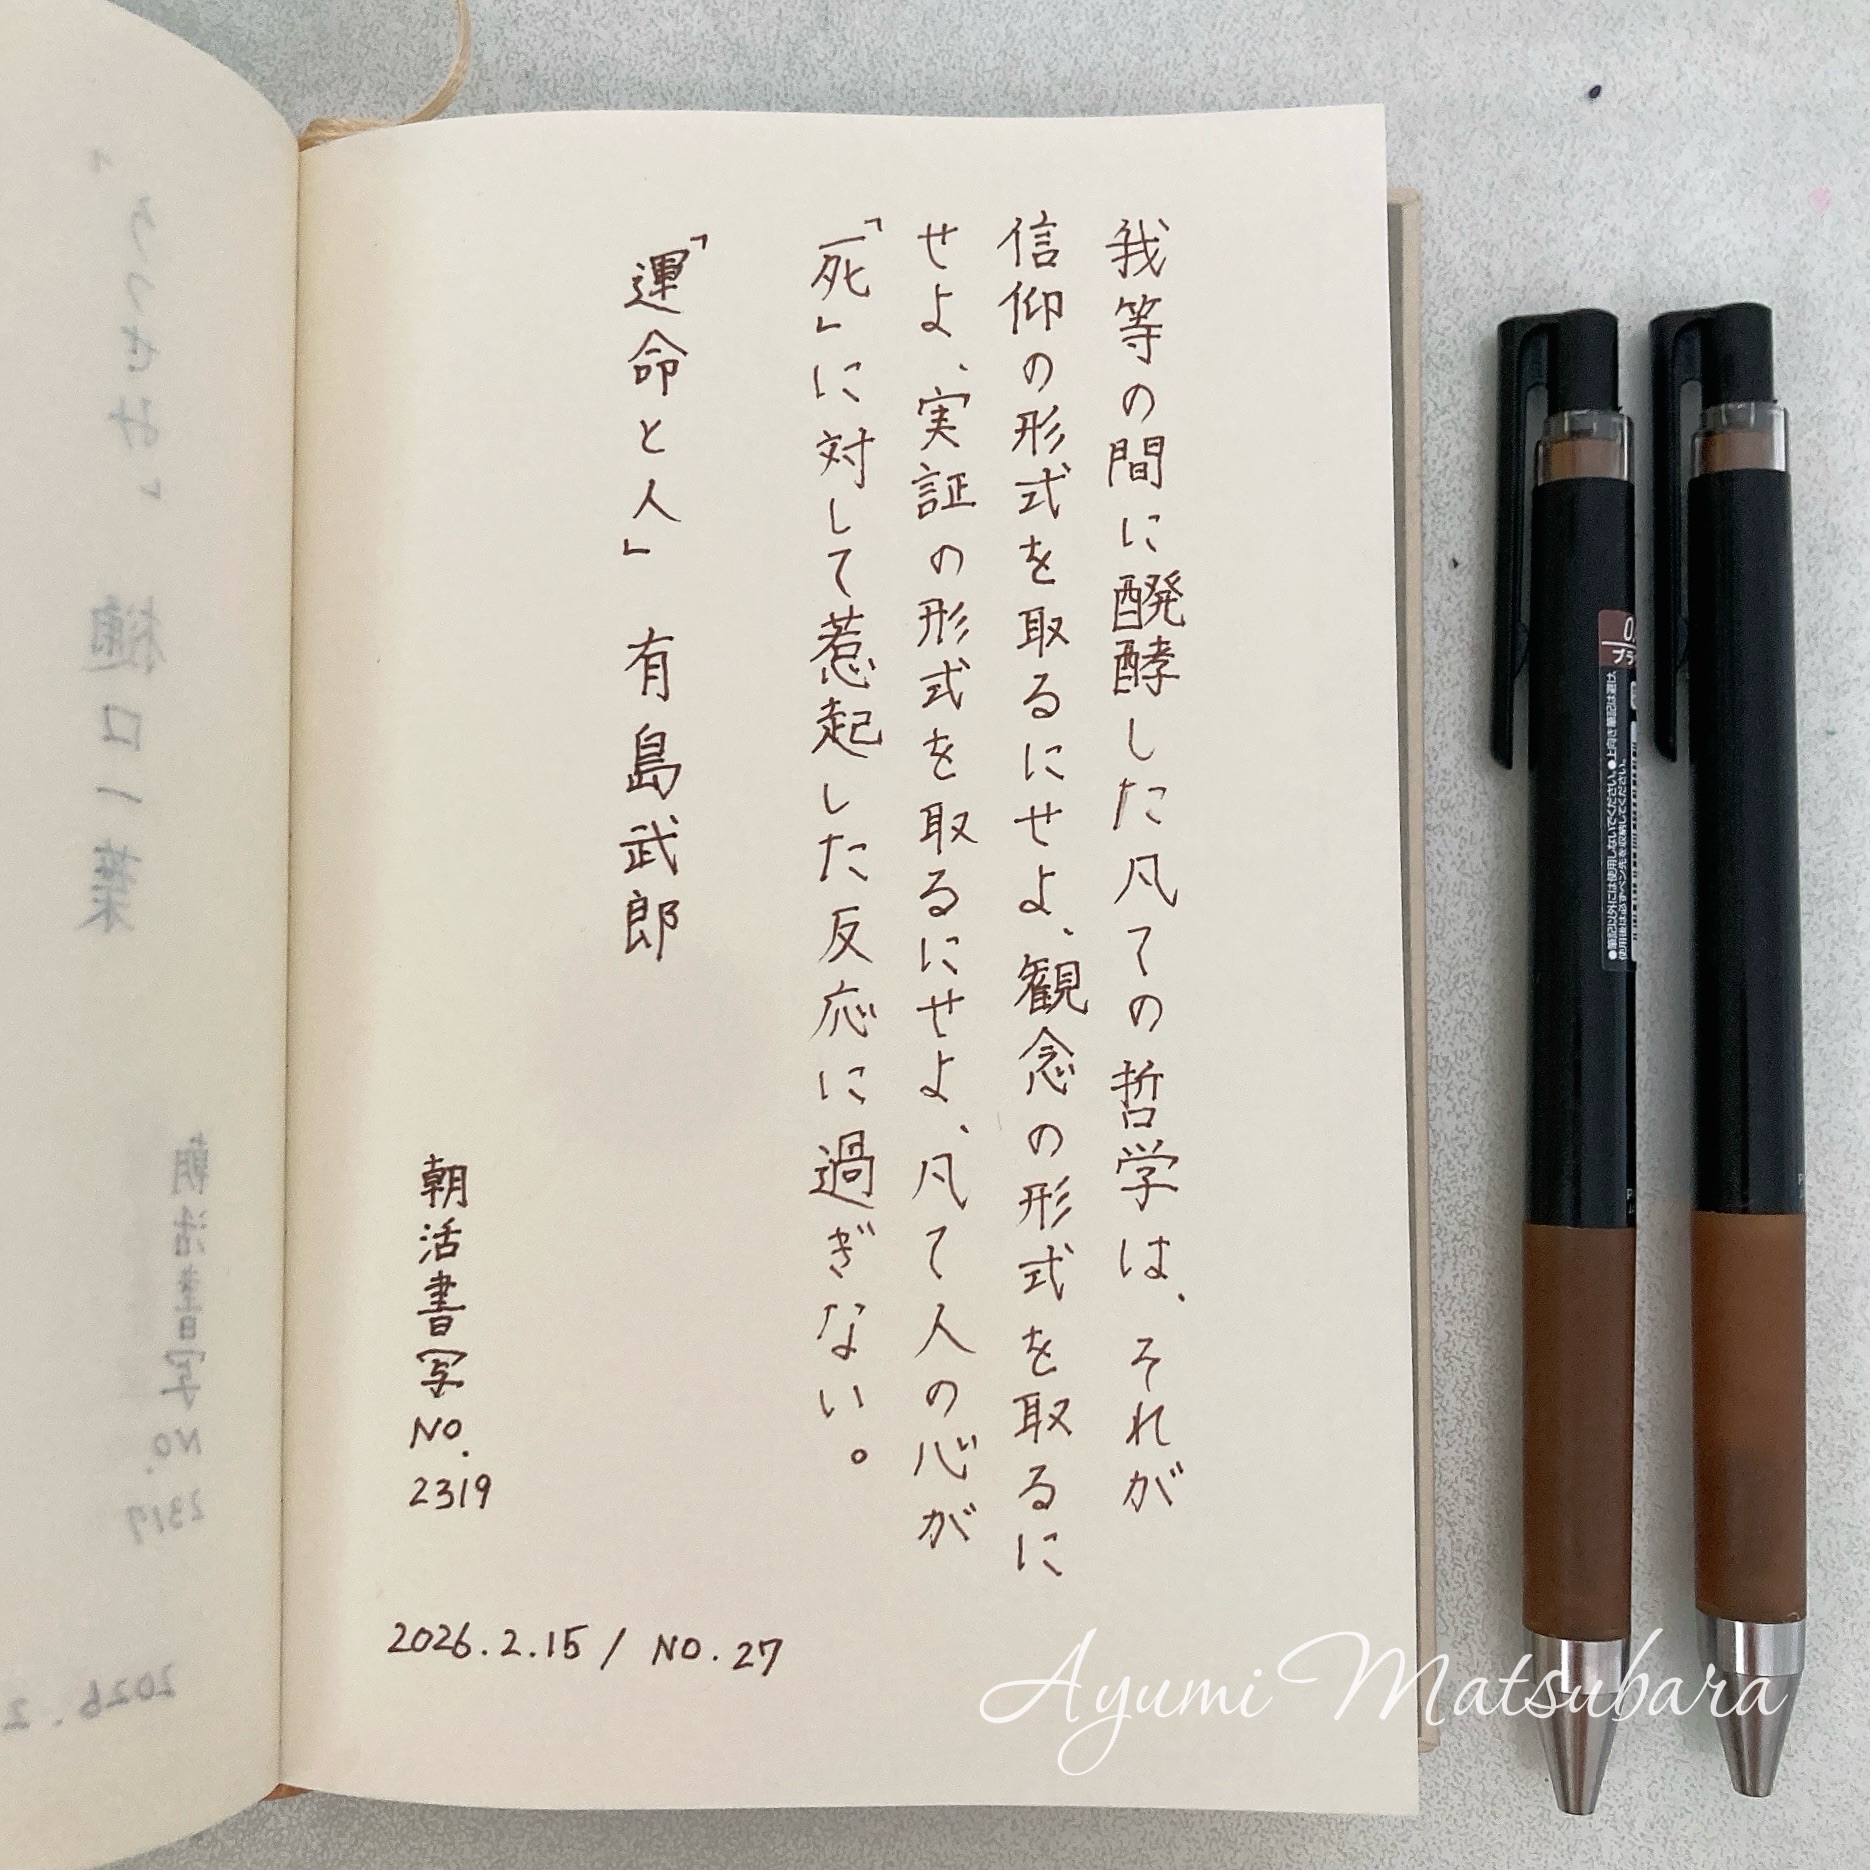 我等の間に醗酵した凡ての哲学は、それが
信仰の形式を取るにせよ、観念の形式を取るに
せよ、実証の形式を取るにせよ、凡て人の心が
「死」に対して惹起した反応に過ぎない。
「運命と人」 有島武郎
朝活書写NO.2319
2026.2.15 / NO.27
うつせみ」 樋口一葉
朝活書写NO.2317
2026.2
Ayumi Matsubara